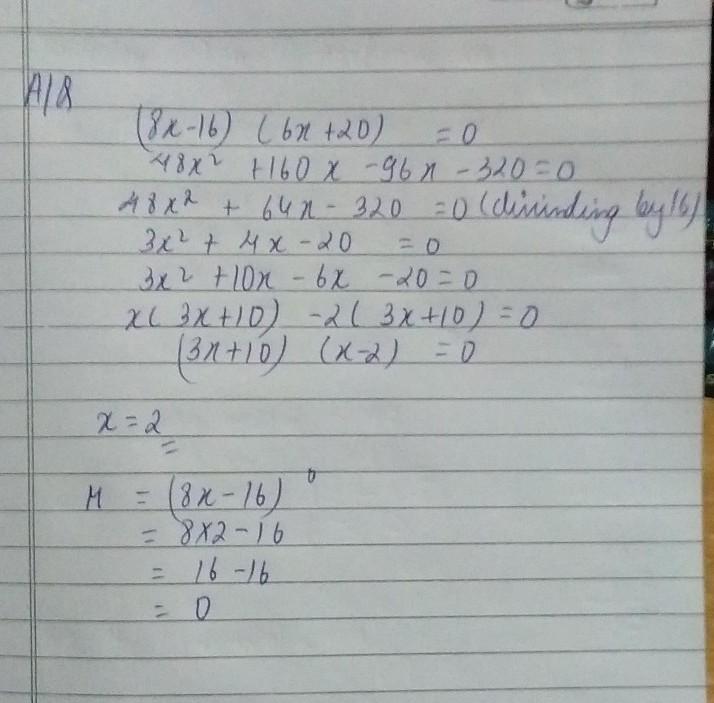 A/Q
(8x-16) (6x+20) = 0
48x² + 160x - 96x - 320 = 0
48x² + 64x - 320 = 0 (divinding by 16)
3x² + 4x - 20 = 0
3x² + 10x - 6x - 20 = 0
x(3x+10) -2(3x+10) = 0
(3x+10) (x-2) = 0
x = 2
M = (8x-16)°
= 8x2-16
= 16-16
= 0